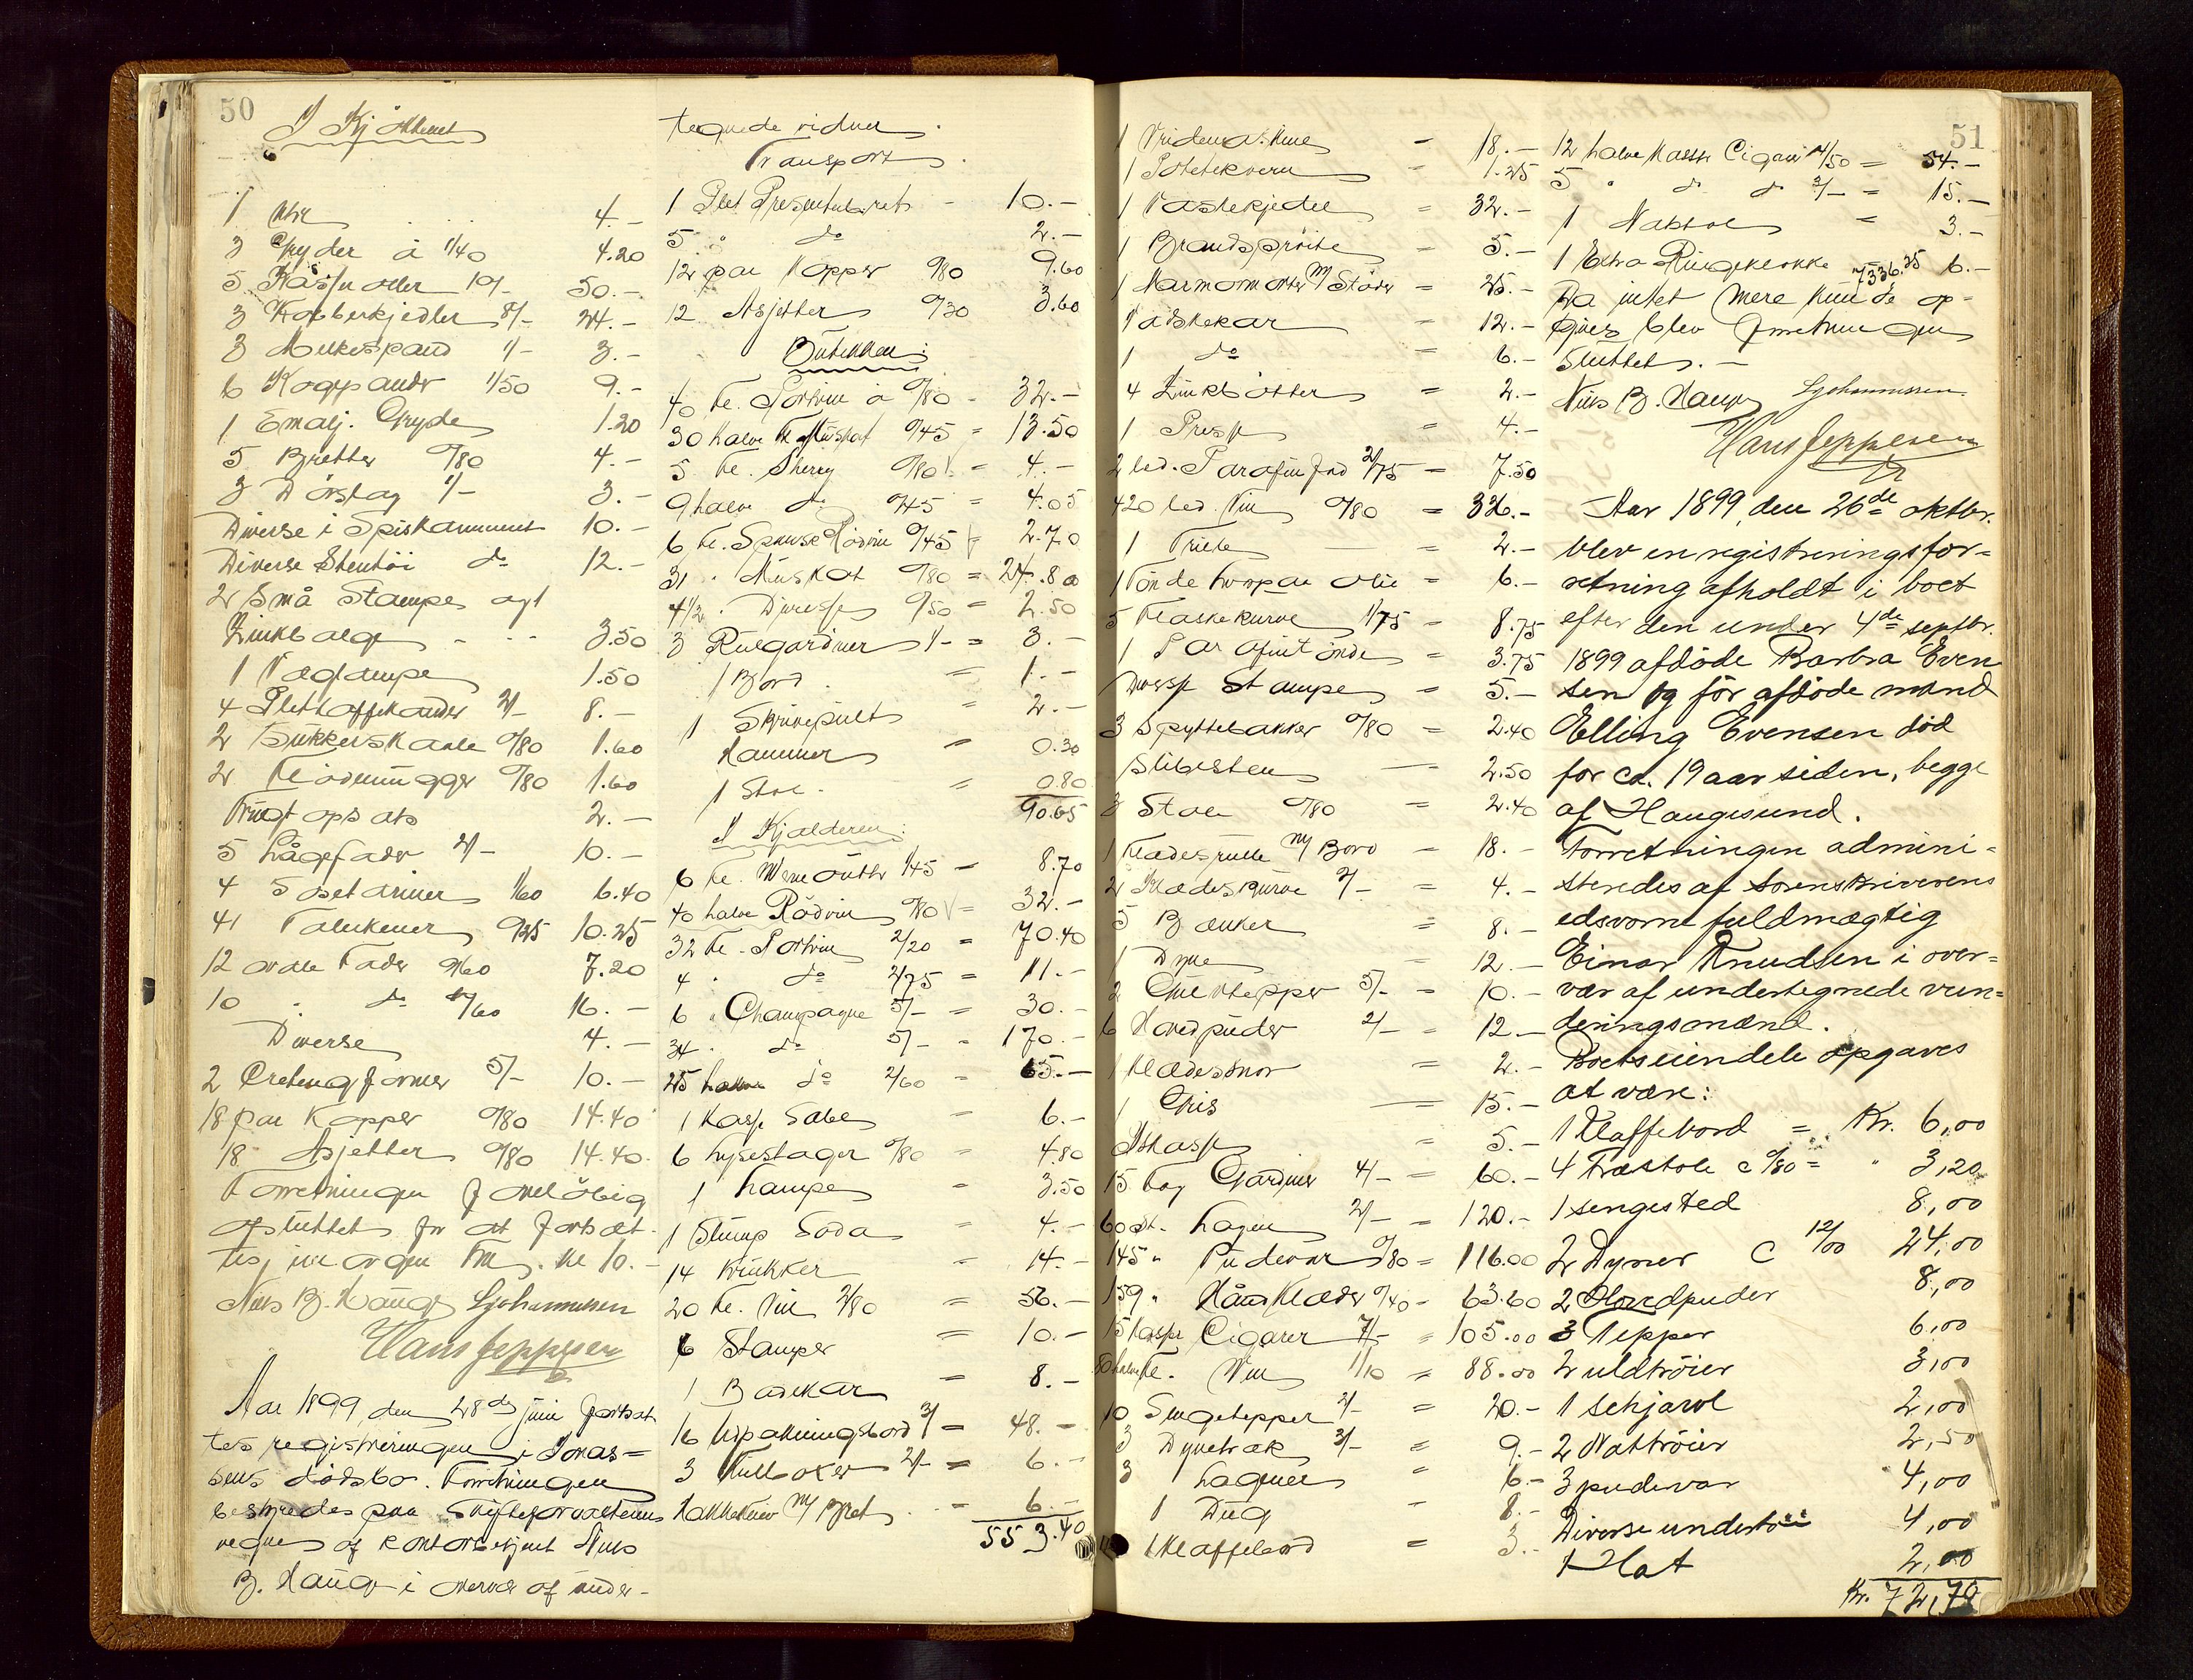 50
I Kjökkenet
1 4.-
3 Gryder à 1/40 4.20
5 10/- 50.-
3 Kobberkjedler 8/- 24.-
3 Melkespand 1/- 3.-
6 Kogepander 1/50 9.-
1 Emalj. Gryde 1.20
5 Bretter 0/80 4.-
3 Dörslag 1/- 3.-
Diverse i Spiskammeret 10.-
Diverse Stentöi do 12.-
2 Små Stamper og 1
Zinkbalge - - - 3.50
1 Væglampe 1.50
4 Plet Kaffekander 2/- 8.-
2 Sukkerskaale 0/80 1.60
2 Flödemugger 0/80 1.60
Frugtopsats 2.-
5 Lågefade 2/- 10.-
4 Sosetariner 1/60 6.40
41 Talerkener 0/25 10.25
12 ovale Fade 0/60 7.20
10 " do 1/60 16.-
Diverse 4.-
2 former 5/- 10.-
18 par Kopper 0/80 14.40
18 Asjetter 0/80 14.40
Forretningen forelöbig
afsluttet for at fortsæt-
tes imorgen Fm. kl 10.-
Niels B. Hauge LJohannessen
Hans Jeppesen
Aar 1899 den 28de juni fortsat
tes registreringen i Jonas=
sens dödsbo. Forretningen
bestyredes paa Skifteforvalterens
vegne af kontorbetjent Niels
B. Hauge i overvær af under-
tegnede vidner.
Transport
1 Plet Presenterbret - 10.-
5 " do 2.-
12 par Kopper 0/80 9.60
12 Asjetter 0/30 3.60
Butikken:
40 fl. Portvin à 0/80 - 32.-
30 halve fl Muskat 0/45 = 13.50
5 fl. Sherry 0/80 = 4.-
9 halve do 0/45 = 4.05
6 fl. Spansk Rödvin 0/45 = 2.70
31 " Muskat 0/80 = 24.80
4 1/2 " Diverse 0/50 = 2.50
3 Rulgardiner 1/- = 3.-
1 Bord = 1.-
1 Skrivepult = 2.-
Hammer = 0.30
1 Stol = 0.80
90.65
I Kjælderen:
6 fl. 1/45 = 8.70
40 halve Rödvin 0/80 = 32.-
32 fl. Portvin 2/20 = 70.40
4 " do 2/75 = 11.-
6 " Champagne 5/- = 30.-
34 " do 5/- = 170.-
25 halve do 2/60 = 65.-
1 Kasse Sæbe = 6.-
6 Lysestager 0/80 = 4.80
1 Lampe = 3.50
1 Stump Soda = 4.-
14 Krukker = 14.-
20 fl. Vin 2/80 = 56.-
6 Stamper = 10.-
1 Badekar = 8.-
16 Udpakningsbord 3/- = 48.-
3 Kulbokser 2/- = 6.-
Hakkekniv m/ Bret - 6.-
553.40
51
1 Vridemaskine - 18.-
1 Potetekvern - 1.25
1 Vaskekjedel = 32.-
1 Brandspröite = 5.-
1 Marmormorter m/ Stöder = 25.-
Vaskekar = 12.-
1 do = 6.-
4 Zinkbötter = 2.-
1 Presse = 4.-
2 led. Parafinfad 2/75 = 7.50
420 led. Vin 0/80 = 336.-
1 = 2.-
1 Tönde Olie = 6.-
5 Flaskekurve 1/75 = 8.75
1 Parafintönde = 3.75
Diverse Stamper = 5.-
3 Spyttebakker 0/80 = 2.40
Slibesten 2.50
3 Stole 0/80 = 2.40
1 Klædesrulle m/ Bord = 18.-
2 Klædeskurve 2/- = 4.-
5 Bænker = 8.-
1 Dyne = 12.-
2 tepper 5/- = 10.-
6 Hovedpuder 2/- = 12.-
1 Klædessnor = 2.-
1 Gris 15.-
Isskasse = 5.-
15 Fag Gardiner 4/- = 60.-
60 st. Lagen 2/- = 120.-
145 " Pudevar 0/80 = 116.00
159 " Håndklæder 0/40 = 63.60
15 kasser Cigarer 7/- = 105.00
80 halve fl. Vin 1/10 = 88.00
10 Sengetepper 2/- = 20.-
3 Dynetræk 3/- = 9.-
3 Lagener = 6.-
1 Dug = 8.-
1 Klaffebord = 3.-
12 halve Kasser Cigarer 4/50 = 54.-
5 " do do 3/- = 15.-
1 Natstol = 3.-
1 Extra Ringeklokke 6.-
7336.35
Da intet mere kunde op-
gives blev Forretningen
Sluttet.-
Niels B. Hauge LJohannessen
Hans Jeppesen
Aar 1899, den 26de oktbr.
blev en registreringsfor=
retning afholdt i boet
efter den under 4de septbr.
1899 afdöde Barbra Even
sen og för afdöde mand
Elling Evensen död
for ca. 19 aar siden, begge
af Haugesund.
Forretningen admini=
streredes af Sorenskriverens
edsvorne fuldmægtig
Einar Knudsen i over=
vær af undertegnede vur=
deringsmænd.
Boets eiendele opgaves
at være:
1 Klaffebord = Kr. 6,00
4 Træstole a 0/80 = " 3,20
1 sengested 8,00
2 Dyner a 12/00 24,00
2 Hovedpuder 8,00
3 Tepper 6,00
2 uldtröier 3,00
1 Schjavl 2,00
2 Nattröier 2,50
3 pudevar 4,00
Diverse undertöi 4,00
1 Hat 2,00
Kr. 72,70